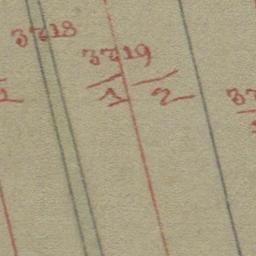 3718
3719
1 2
37